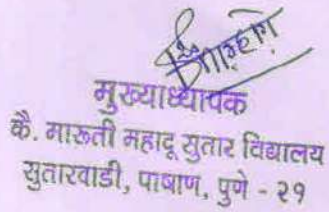 मुख्याध्यापक
कै. मारूती महादू सुतार विद्यालय
सुतारवाडी, पाषाण, पुणे - २१